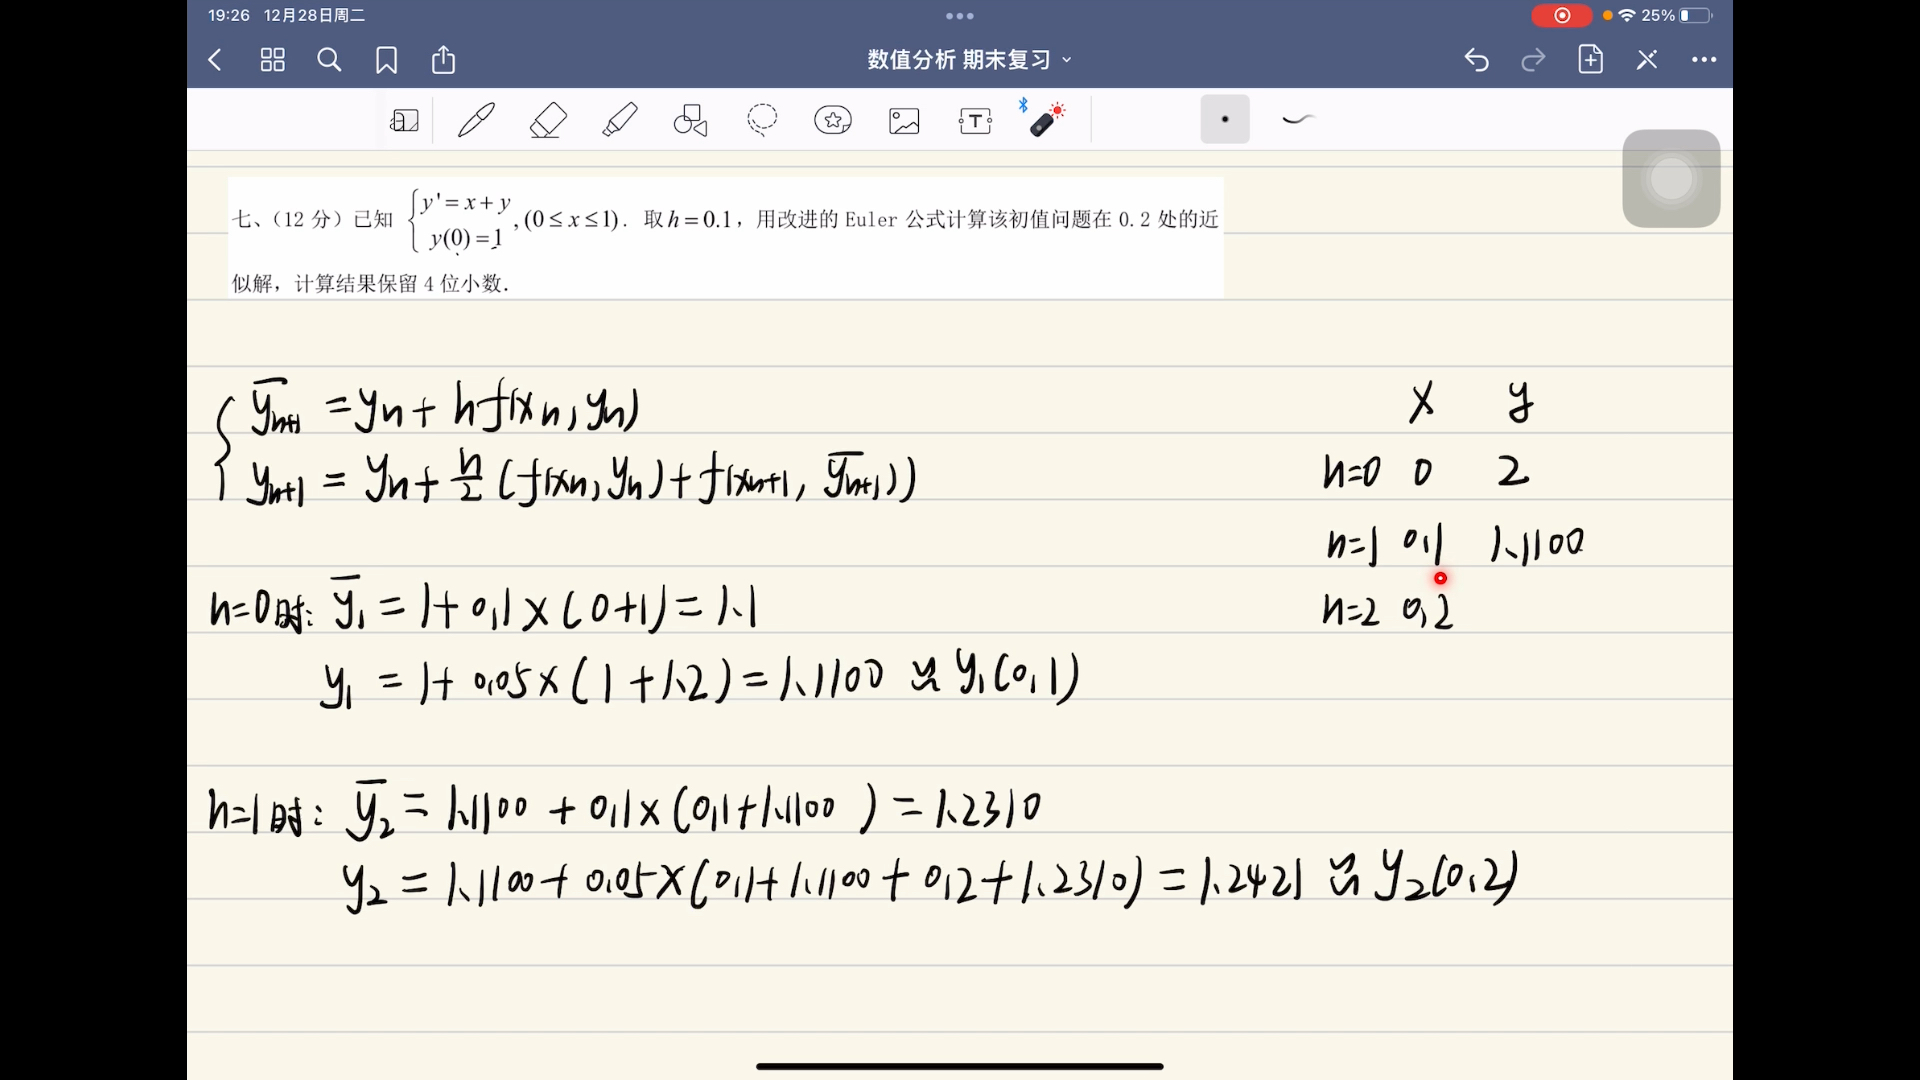 19:26 12月28日周二
25%
数值分析 期末复习
七、(12 分) 已知 { y' = x + y, y(0) = 1 , (0 ≤ x ≤ 1). 取 h = 0.1, 用改进的 Euler 公式计算该初值问题在 0.2 处的近
似解, 计算结果保留 4 位小数.
{ ȳn+1 = yn + h f(xn, yn)
yn+1 = yn + h/2 (f(xn, yn) + f(xn+1, ȳn+1))
x y
n=0 0 2
n=1 0.1 1.1100
n=2 0.2
n=0时: ȳ1 = 1 + 0.1 × (0+1) = 1.1
y1 = 1 + 0.05 × (1 + 1.2) = 1.1100 ≈ y1(0.1)
n=1时: ȳ2 = 1.1100 + 0.1 × (0.1 + 1.1100) = 1.2310
y2 = 1.1100 + 0.05 × (0.1 + 1.1100 + 0.2 + 1.2310) = 1.2421 ≈ y2(0.2)